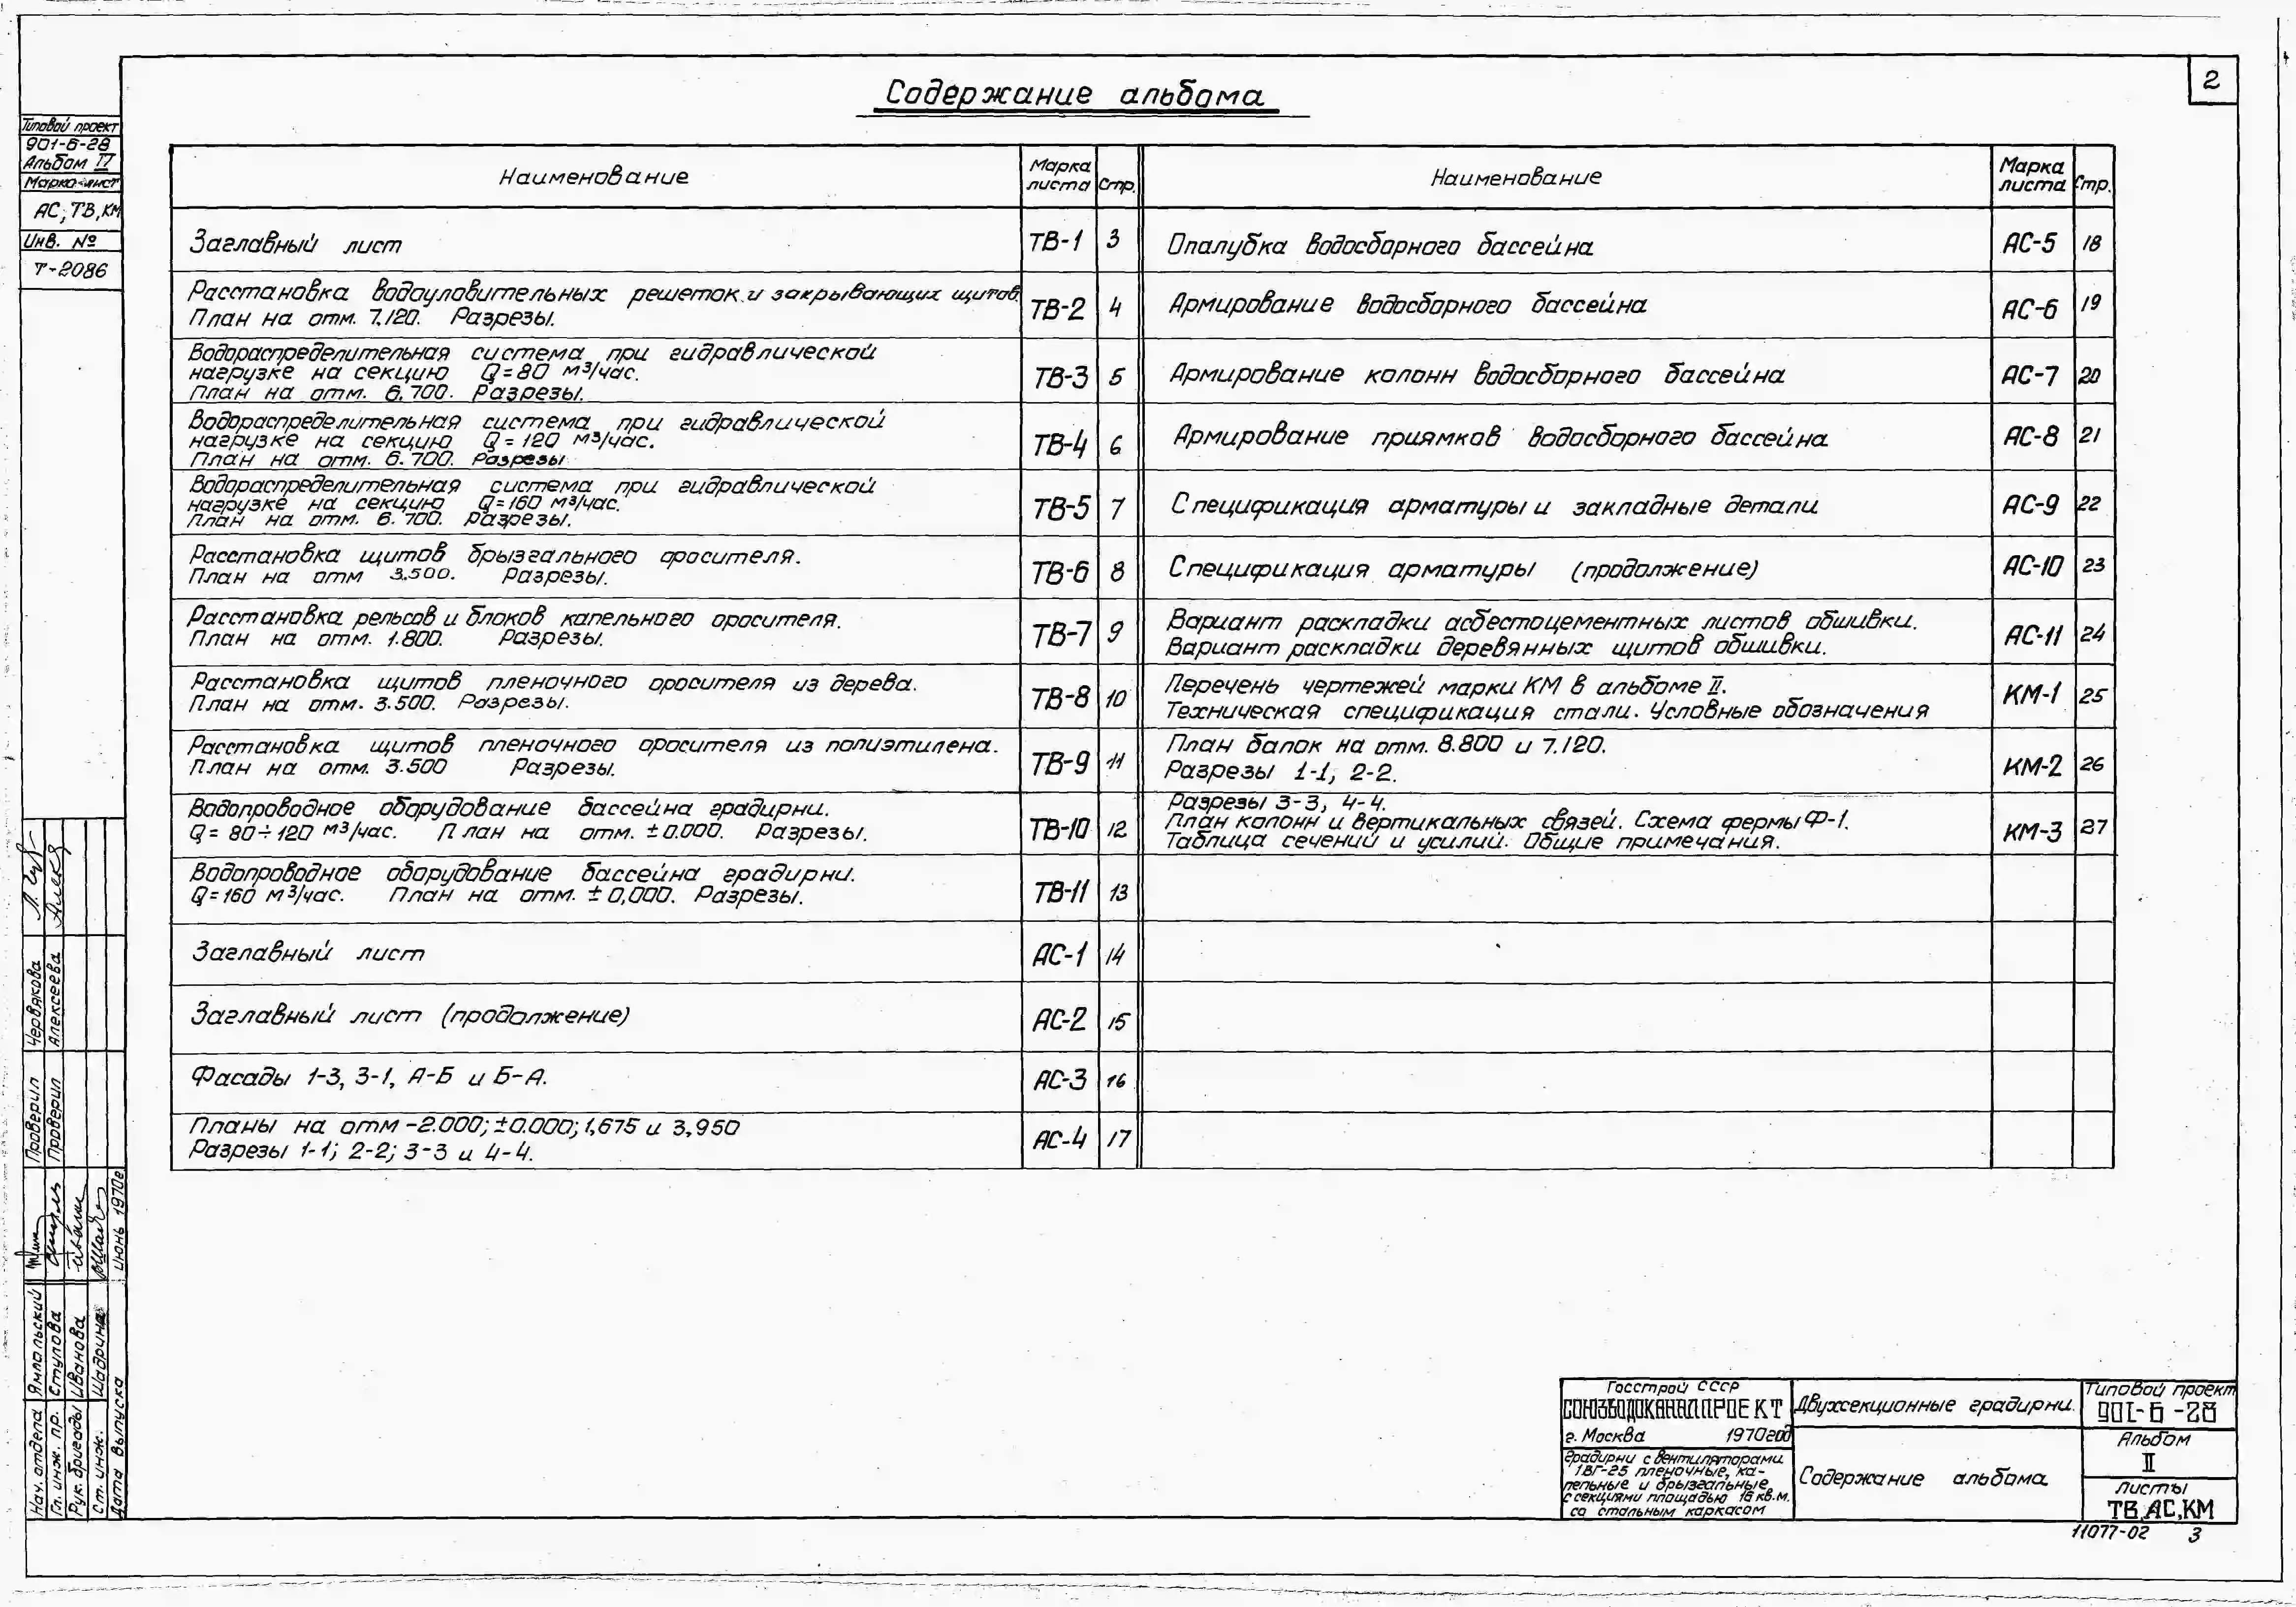 2
Содержание альбома
Типовой проект
901-6-28
Альбом II
Марка-лист
АС; ТВ, КМ
Инв. №
Т-2086
Наименование
Марка листа
Стр.
Заглавный лист
ТВ-1
3
Расстановка водоуловительных решеток и закрывающих щитов.
План на отм. 7.120. Разрезы.
ТВ-2
4
Водораспределительная система при гидравлической
нагрузке на секцию Q=80 м³/час.
План на отм. 6.700. Разрезы.
ТВ-3
5
Водораспределительная система при гидравлической
нагрузке на секцию Q=120 м³/час.
План на отм. 6.700. Разрезы
ТВ-4
6
Водораспределительная система при гидравлической
нагрузке на секцию Q=160 м³/час.
План на отм. 6.700. Разрезы.
ТВ-5
7
Расстановка щитов брызгального оросителя.
План на отм 3.500. Разрезы.
ТВ-6
8
Расстановка рельсов и блоков капельного оросителя.
План на отм. 1.800. Разрезы.
ТВ-7
9
Расстановка щитов пленочного оросителя из дерева.
План на отм. 3.500. Разрезы.
ТВ-8
10
Расстановка щитов пленочного оросителя из полиэтилена.
План на отм. 3.500 Разрезы.
ТВ-9
11
Водопроводное оборудование бассейна градирни.
Q= 80÷120 м³/час. План на отм. ±0.000. Разрезы.
ТВ-10
12
Водопроводное оборудование бассейна градирни.
Q=160 м³/час. План на отм. ±0,000. Разрезы.
ТВ-11
13
Заглавный лист
АС-1
14
Заглавный лист (продолжение)
АС-2
15
Фасады 1-3, 3-1, А-Б и Б-А.
АС-3
16
Планы на отм -2.000; ±0.000; 1,675 и 3,950
Разрезы 1-1; 2-2; 3-3 и 4-4.
АС-4
17
Наименование
Марка листа
Стр.
Опалубка водосборного бассейна
АС-5
18
Армирование водосборного бассейна
АС-6
19
Армирование колонн водосборного бассейна
АС-7
20
Армирование приямков водосборного бассейна
АС-8
21
Спецификация арматуры и закладные детали
АС-9
22
Спецификация арматуры (продолжение)
АС-10
23
Вариант раскладки асбестоцементных листов обшивки.
Вариант раскладки деревянных щитов обшивки.
АС-11
24
Перечень чертежей марки КМ в альбоме II.
Техническая спецификация стали. Условные обозначения
КМ-1
25
План балок на отм. 8.800 и 7.120.
Разрезы 1-1, 2-2.
КМ-2
26
Разрезы 3-3, 4-4.
План колонн и вертикальных связей. Схема фермы Ф-1.
Таблица сечений и усилий. Общие примечания.
КМ-3
27
Проверил Червякова
Проверил Алексеева
Нач. отдела Ямпольский
Гл. инж. пр. Ступова
Рук. бригады Иванова
Ст. инж. Шадрина
Дата выпуска июнь 1970г
Госстрой СССР
СОЮЗВОДОКАНАЛПРОЕКТ
г. Москва 1970год
Градирни с вентиляторами
1ВГ-25 пленочные, ка-
пельные и брызгальные
с секциями площадью 16 кв.м.
со стальным каркасом
Двухсекционные градирни.
Содержание альбома
Типовой проект
901-6-28
Альбом
II
Листы
ТВ, АС, КМ
11077-02 3